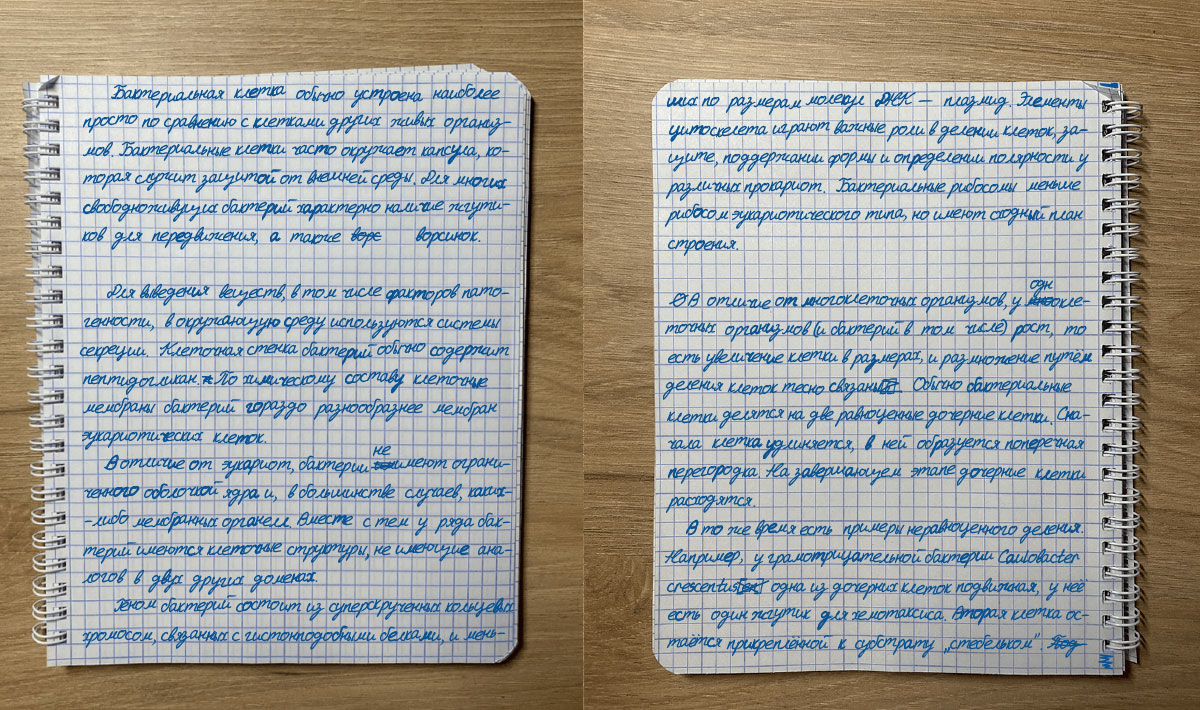 Бактериальная клетка обычно устроена наиболее
просто по сравнению с клетками других живых организ-
мов. Бактериальные клетки часто окружает капсула, ко-
торая служит защитой от внешней среды. Для многих
свободноживущих бактерий характерно наличие жгути-
ков для передвижения, а также ворсинок.
Для выведения веществ, в том числе факторов пато-
генности, в окружающую среду используются системы
секреции. Клеточная стенка бактерий обычно содержит
пептидогликан. По химическому составу клеточные
мембраны бактерий гораздо разнообразнее мембран
эукариотических клеток.
В отличие от эукариот, бактерии не имеют ограни-
ченного оболочкой ядра и, в большинстве случаев, каких-
-либо мембранных органелл. Вместе с тем у ряда бак-
терий имеются клеточные структуры, не имеющие ана-
логов в двух других доменах.
Геном бактерий состоит из суперскрученных кольцевых
хромосом, связанных с гистонподобными белками, и мень-
ших по размерам молекул ДНК — плазмид. Элементы
цитоскелета играют важные роли в делении клеток, за-
щите, поддержании формы и определении полярности у
различных прокариот. Бактериальные рибосомы меньше
рибосом эукариотического типа, но имеют сходный план
строения.
В отличие от многоклеточных организмов, у однокле-
точных организмов (и бактерий в том числе) рост, то
есть увеличение клетки в размерах, и размножение путём
деления клеток тесно связаны. Обычно бактериальные
клетки делятся на две равноценные дочерние клетки. Сна-
чала клетка удлиняется, в ней образуется поперечная
перегородка. На завершающем этапе дочерние клетки
расходятся.
В то же время есть примеры неравноценного деления.
Например, у грамотрицательной бактерии Caulobacter
crescentus одна из дочерних клеток подвижная, у неё
есть один жгутик для хемотаксиса. Вторая клетка ос-
таётся прикреплённой к субстрату „стебельком“.